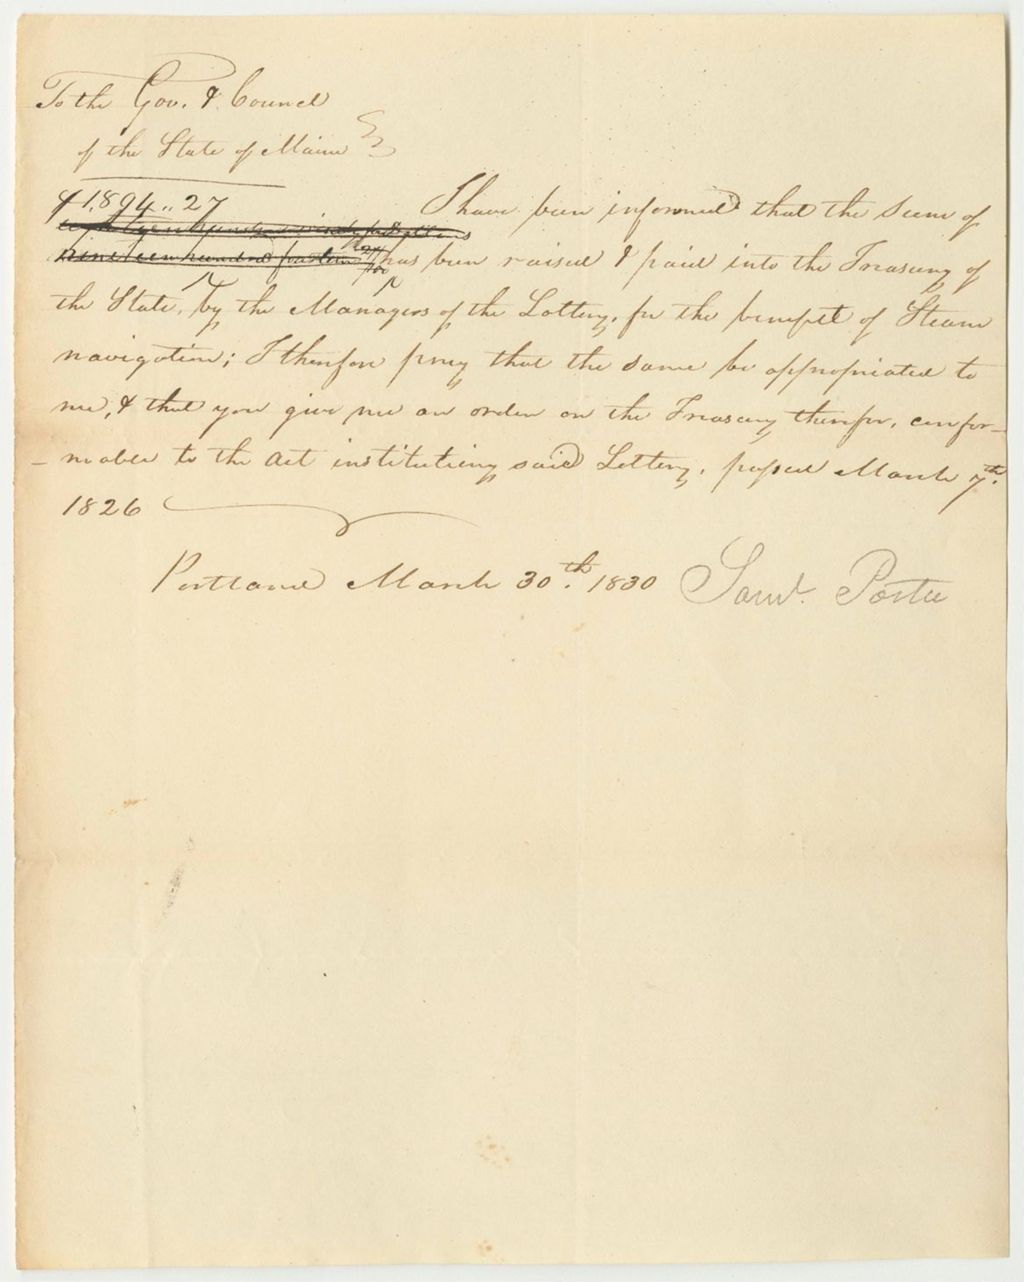 To the Gov. & Council
of the State of Maine
$1,894..27 I have been informed that the Sum of
nineteen hundred has been raised & paid into the Treasury of
the State, by the Managers of the Lottery, for the benefit of Steam
navigation; I therefore pray that the same be appropriated to
me, & that you give me an order on the Treasury therefor, confor-
-mable to the act instituting said Lottery, passed March 7th.
1826
Portland March 30th. 1830 Saml. Porter